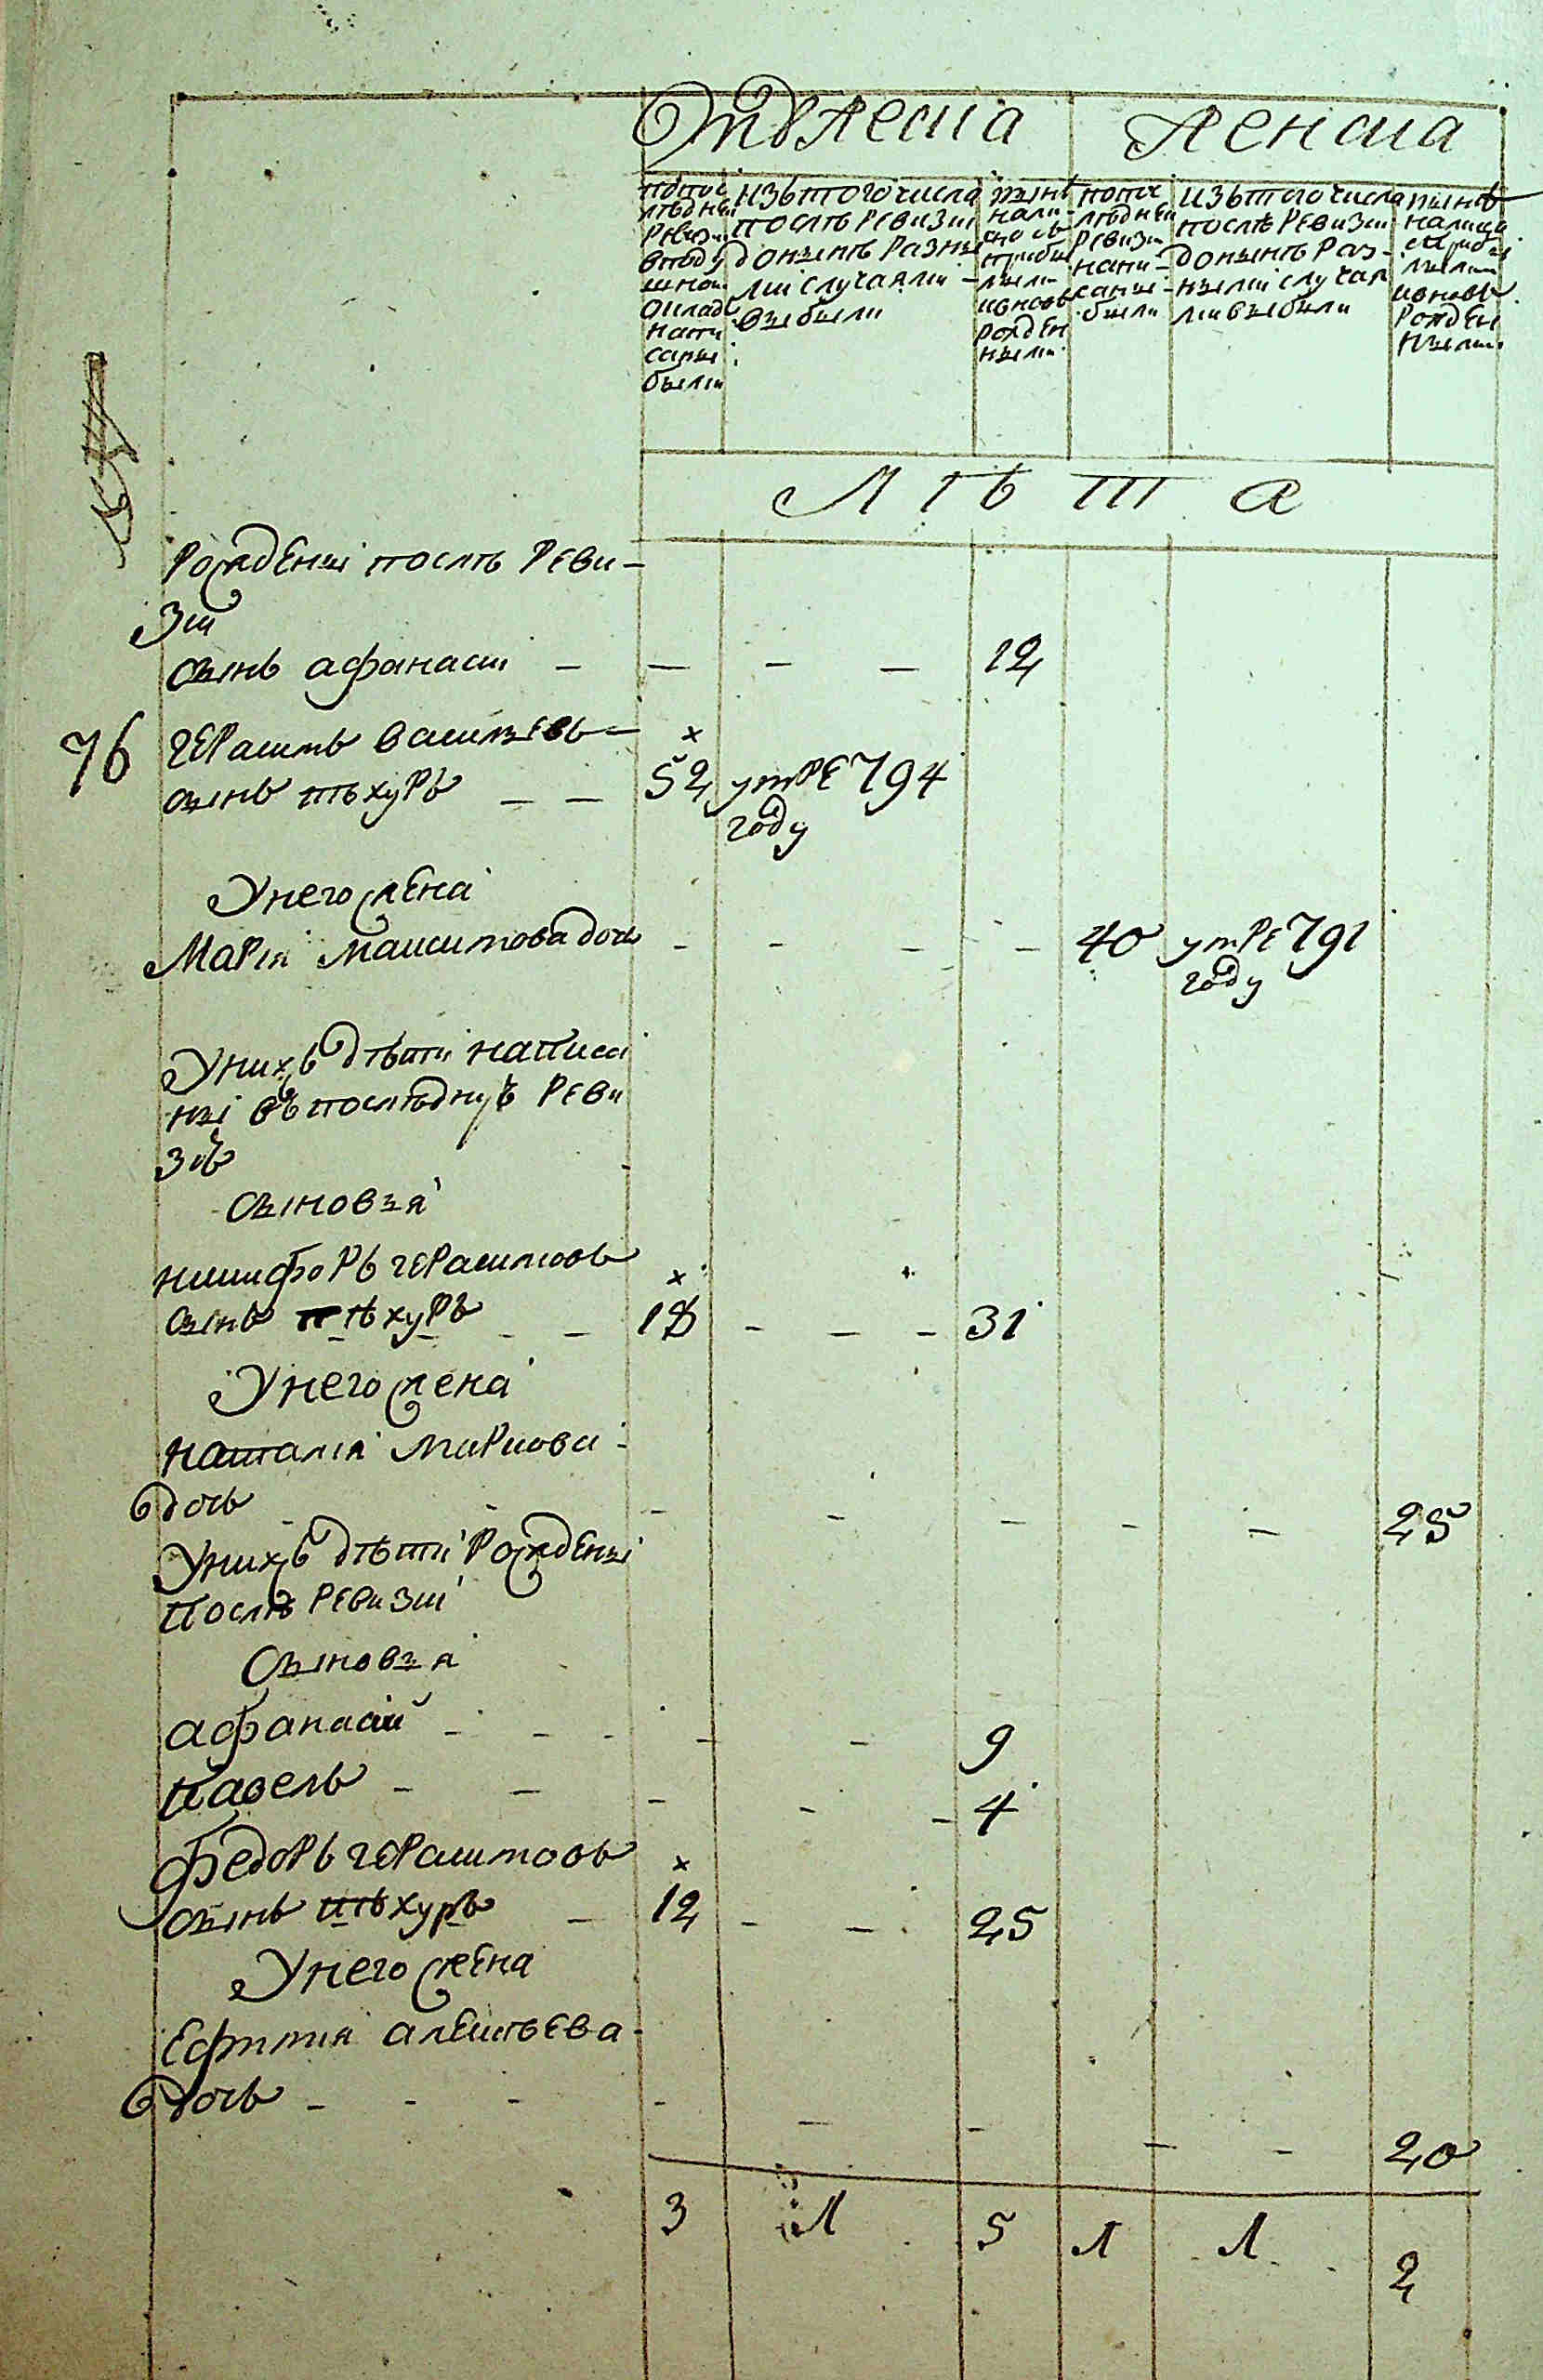 Мужеска Женска
По пос
лѣдней
ревизи
в поду
шной
оклад
напи
саны
были
изъ того числа
послѣ ревизии
до нынѣ разны
ми случаями
выбыли
нынѣ
нали
но съ
прибы
лыми
и вновь
рожден
ными
по пос
лѣдней
ревизи
напи-
саны
были
изъ того числа
послѣ ревизии
до нынѣ раз-
ными случая
ми выбыли
нынѣ
налицо
с прибы
лыми
и вновь
рожден
ными
Лѣта
рожденні послѣ реви-
зіи
сынъ афанасіи 12
76 герасимъ васильевъ х
сынъ пѣхуръ 52 умре 794
году
У него жена
Марія Максимова дочь 40 умре 791
году
У нихъ дѣти написа
ны въ последнуѣ реви
зію
сыновья
никифоръ герасимовъ х
сынъ пѣхуръ 18 31
У него жена
наталія Маркова
дочь 25
У нихъ дѣти рождены
После ревизіи
Сыновья
афанасій 9
Павелъ 4
федоръ герасимовъ х
сынъ пѣхуръ 12 25
У него жена
Ефимия алексѣева
дочь 20
3 1 5 1 1 2